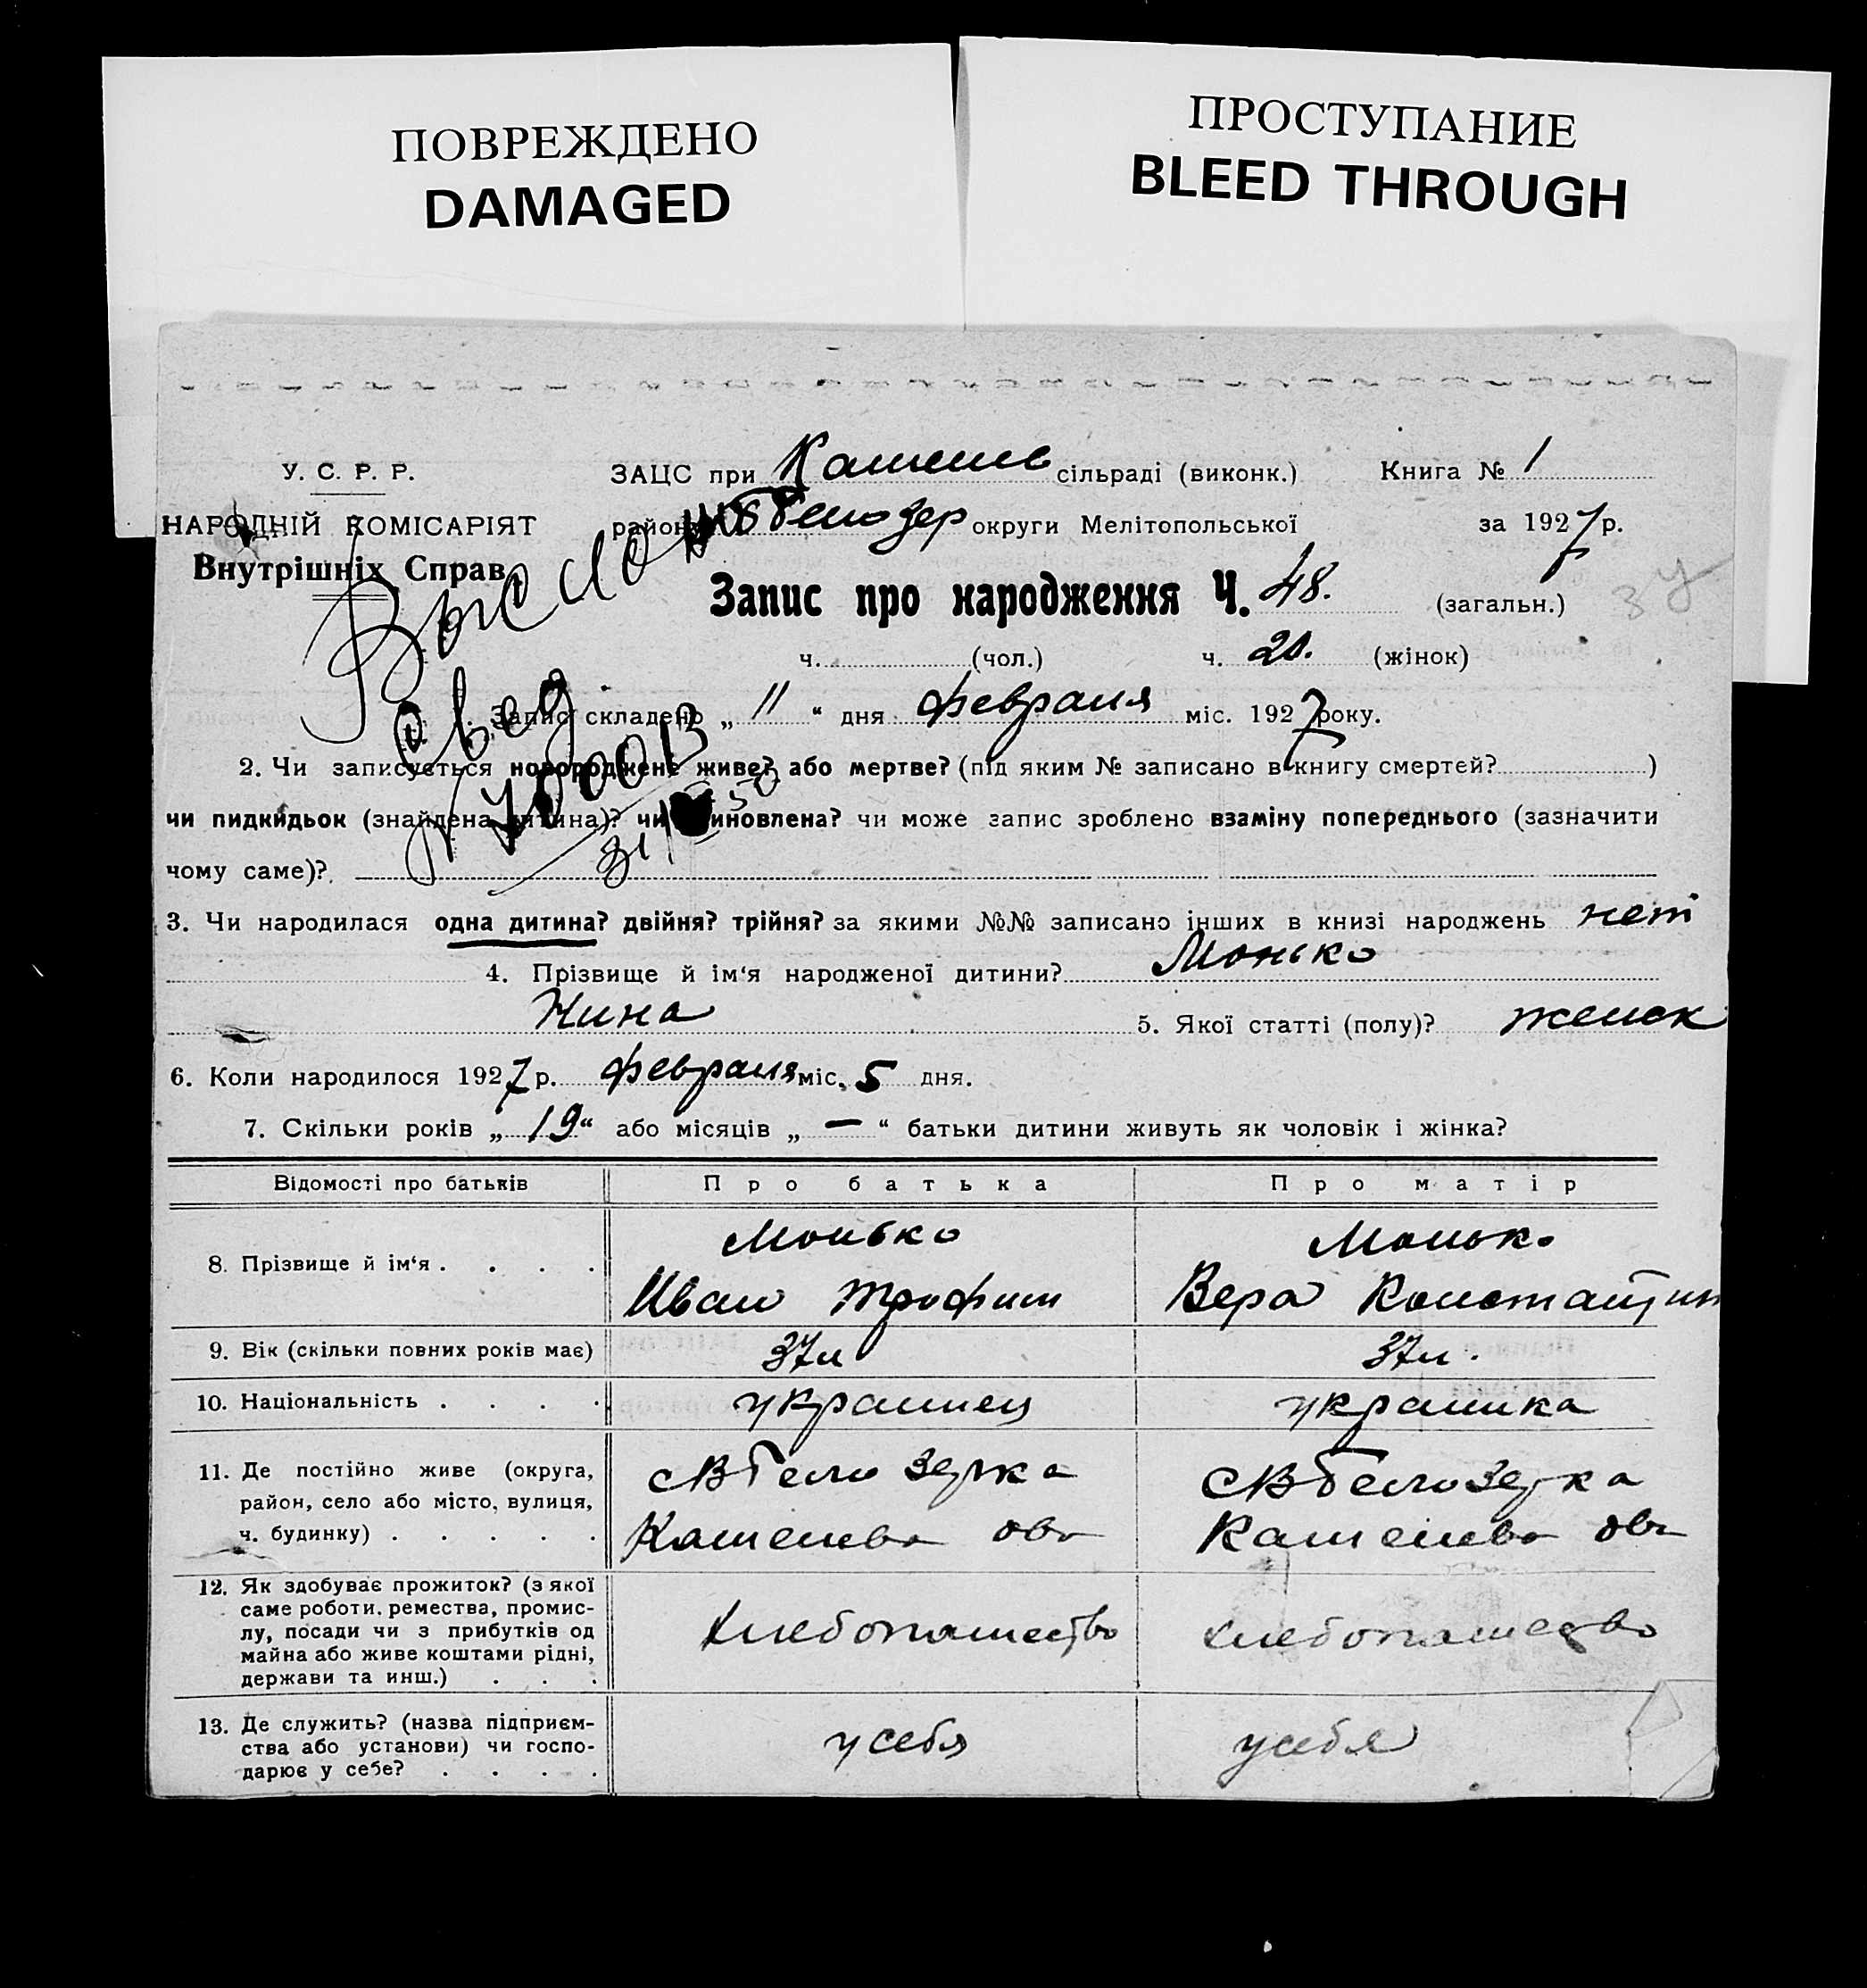 ПОВРЕЖДЕНО
DAMAGED
ПРОСТУПАНИЕ
BLEED THROUGH
У. С. Р. Р.
НАРОДНІЙ КОМІСАРІЯТ
Внутрішніх Справ.
ЗАЦС при сільраді (виконк.) Книга № 1
району округи Мелітопольської за 1927 р.
Запис про народження Ч. 48. (загальн.)
ч. (чол.) ч. 20. (жінок)
Запис складено „ 11 “ дня февраля міс. 1927 року.
2. Чи записується новороджене живе? або мертве? (під яким № записано в книгу смертей? )
чи пидкидьок (знайдена дитина)? чи иновлена? чи може запис зроблено взаміну попереднього (зазначити
чому саме)?
3. Чи народилася одна дитина? двійня? трійня? за якими №№ записано інших в книзі народжень нет
4. Прізвище й ім‘я народженої дитини? Монько
Нина 5. Якої статті (полу)? женск
6. Коли народилося 1927 р. февраля міс. 5 дня.
7. Скільки років „ 19 “ або місяців „ — “ батьки дитини живуть як чоловік і жінка?
Відомості про батьків Про батька Про матір
8. Прізвище й ім‘я . . . . Монько Монько
Иван Трофим Вера Константин
9. Вік (скільки повних років має) 37 л 37 л.
10. Національність . . . . украинец украинка
11. Де постійно живе (округа,
район, село або місто, вулиця,
ч. будинку) . . . . .
12. Як здобуває прожиток? (з якої
саме роботи, ремества, промис-
лу, посади чи з прибутків од
майна або живе коштами рідні,
держави та инш.) . . .
хлебопашество хлебопашество
13. Де служить? (назва підприєм-
ства або установи) чи госпо-
дарює у себе? . . . .
у себя у себя